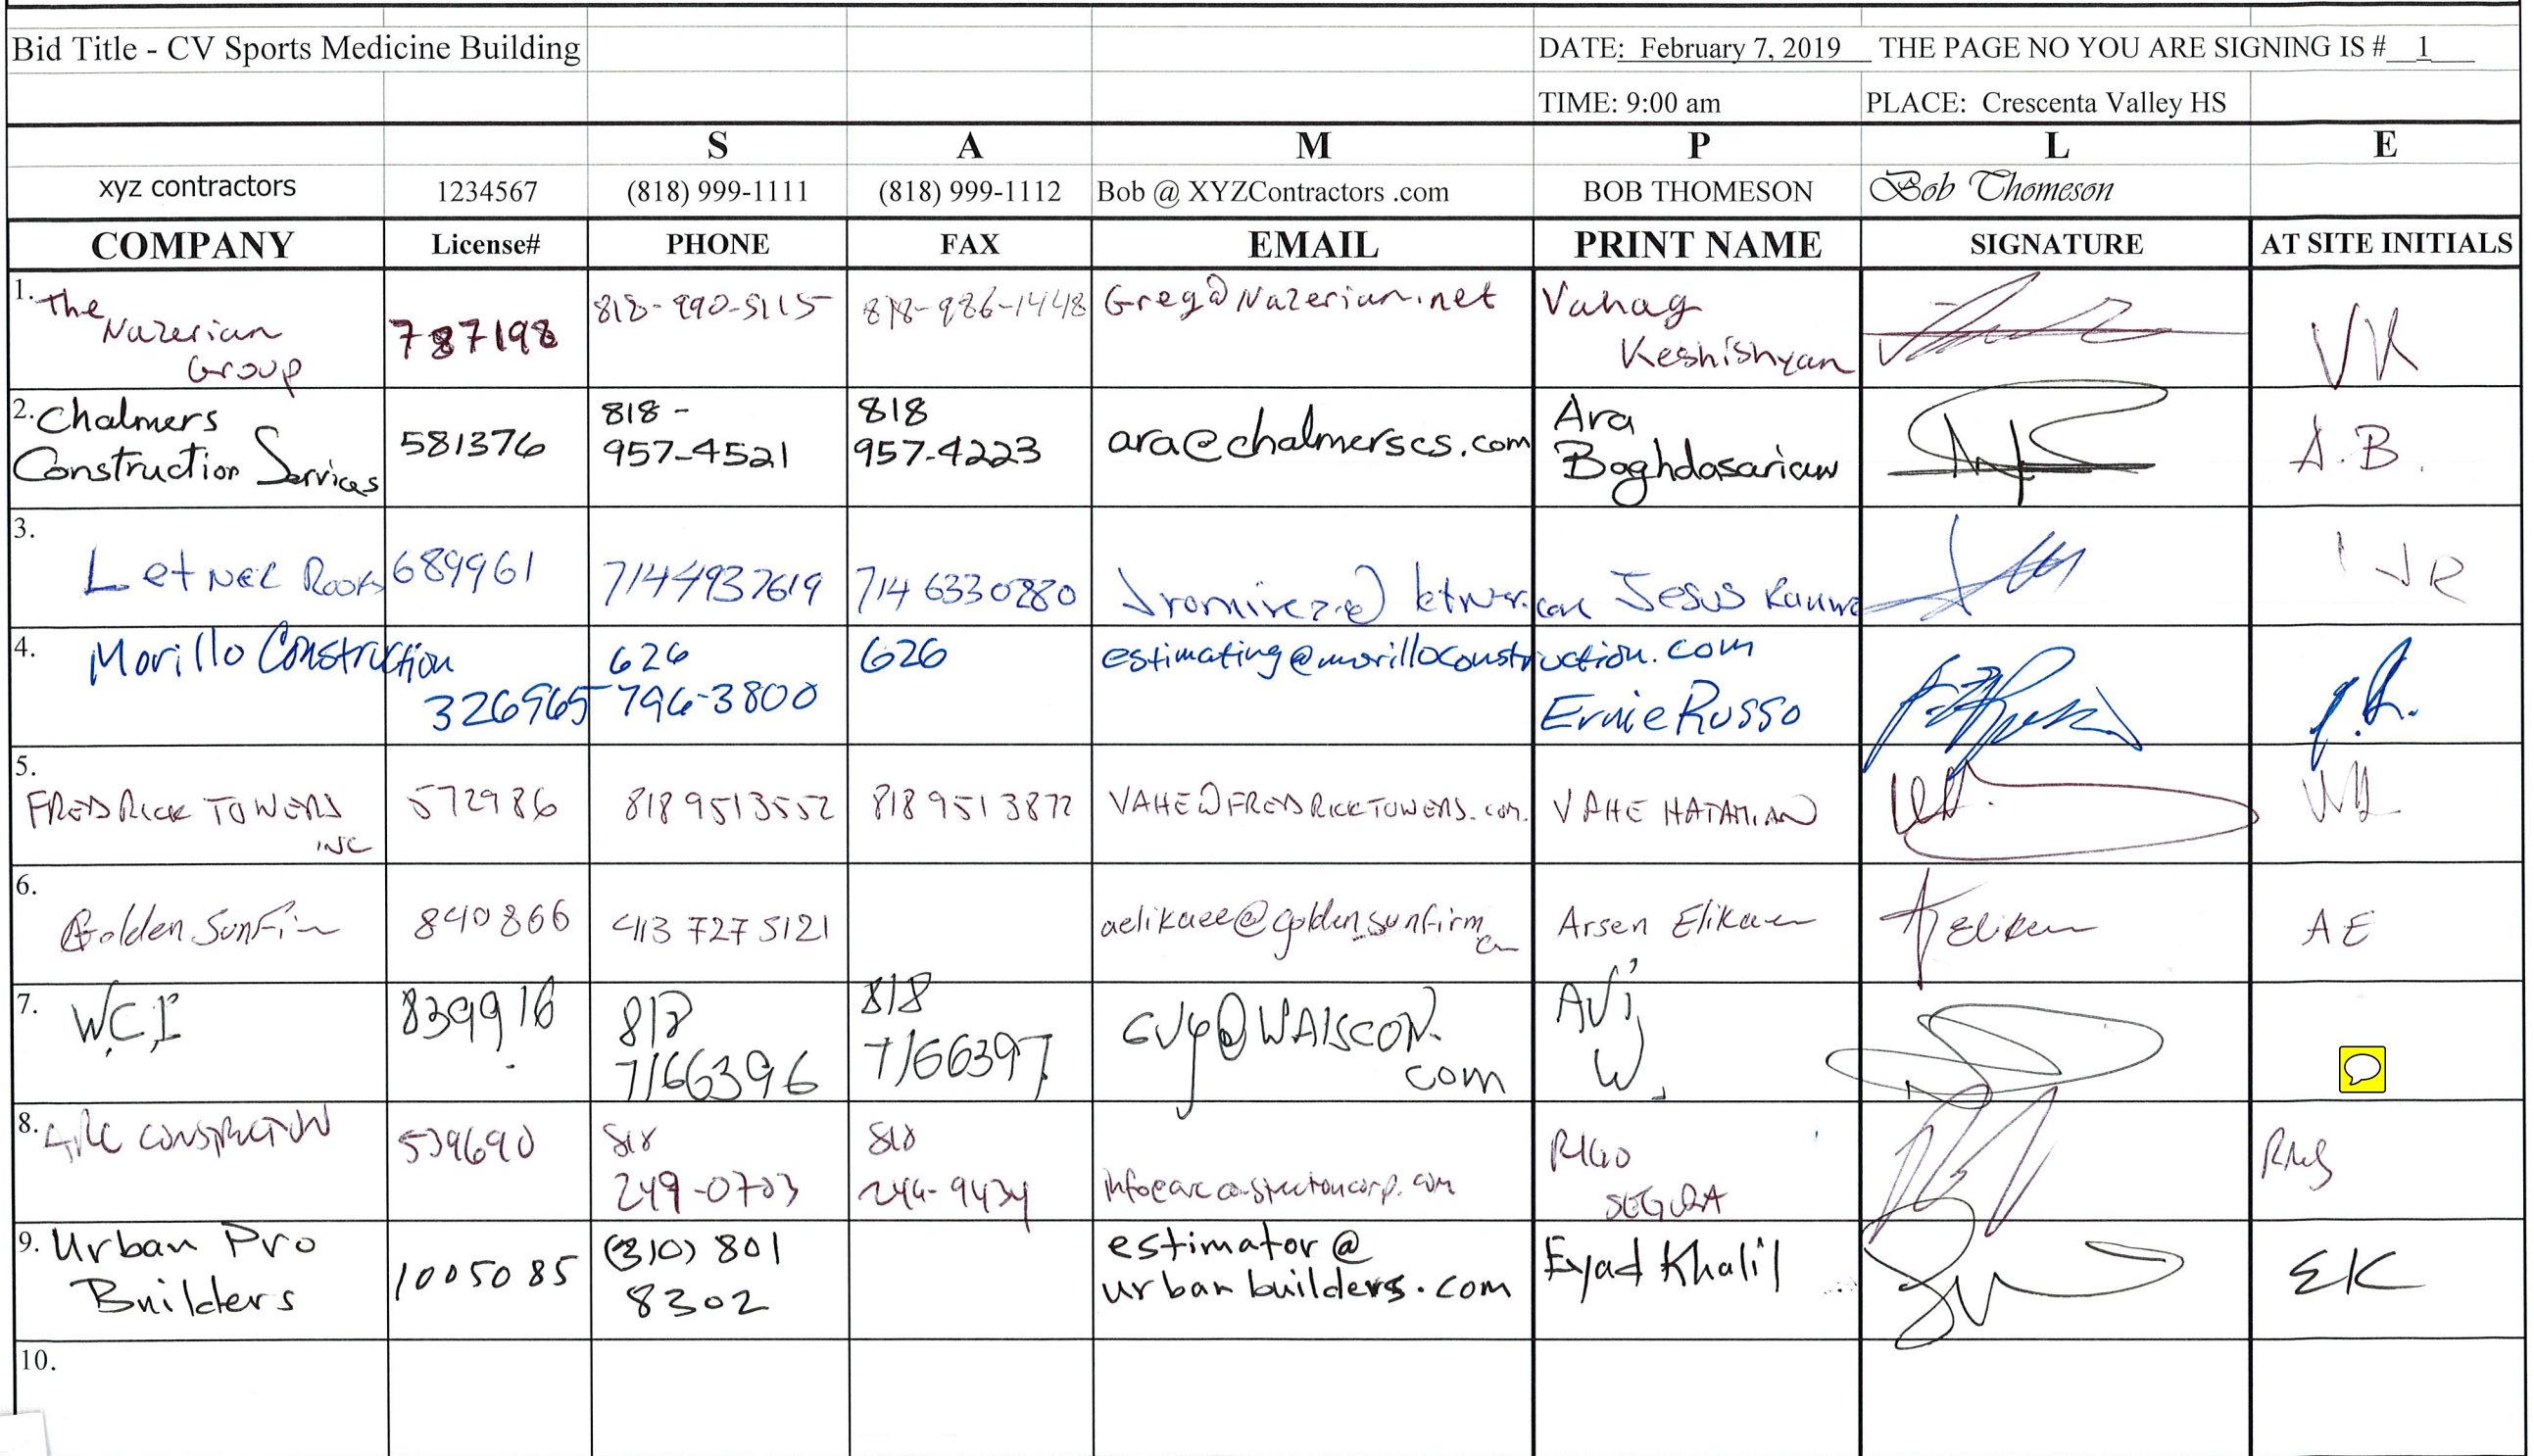 Bid Title - CV Sports Medicine Building DATE: February 7, 2019 THE PAGE NO YOU ARE SIGNING IS # 1
TIME: 9:00 am PLACE: Crescenta Valley HS
S A M P L E
xyz contractors 1234567 (818) 999-1111 (818) 999-1112 Bob @ XYZContractors .com BOB THOMESON Bob Thomeson
COMPANY License# PHONE FAX EMAIL PRINT NAME SIGNATURE AT SITE INITIALS
1. The Nazerian Group 787198 818-990-5115 818-986-1448 Greg@Nazerian.net Vahag Keshishyan VK
2. Chalmers Construction Services 581376 818-957-4521 818 957-4223 ara@chalmerscs.com Ara Baghdasarian A.B.
3. Letner Roofing 689961 7144937619 7146330880 Jesus JR
4. Morillo Construction 326965 626 796-3800 626 estimating@morilloconstruction.com Ernie Russo
5. FREDRICK TOWERS INC 572986 8189513552 8189513872 VAHE@FREDRICKTOWERS.com VAHE HATAMIAN
6. Golden Sun Firm 840866 413 727 5121 aelikaee@goldensunfirm Arsen AE
7. W.C.I 839916 818 7166396 818 7166397 GUY@WAISCON.com AVi W.
8. ARC CONSTRUCTION 539690 818 249-0703 818 244-9434 info@arcconstructioncorp.com RIGO SEGURA RMS
9. Urban Pro Builders 1005085 (310) 801 8302 estimator@urbanbuilders.com Eyad Khalil EK
10.